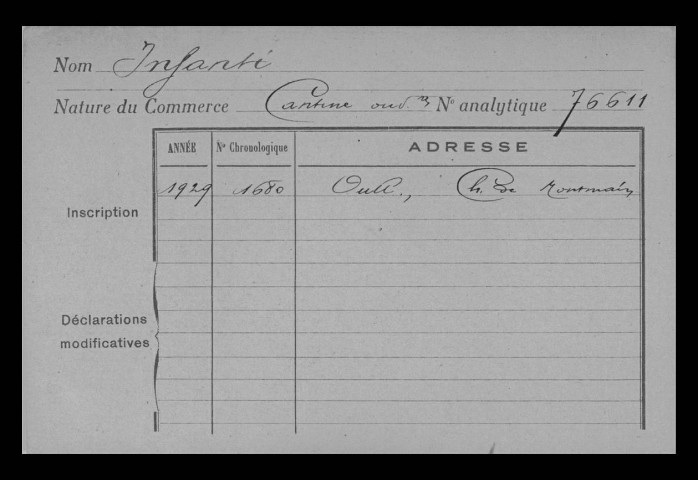 Nom Infanti
Nature du Commerce Cantine ouv. N° analytique 76611
ANNÉE N° Chronologique ADRESSE
1929 1680 Oull., Ch. de Montmein
Inscription
Déclarations
modificatives